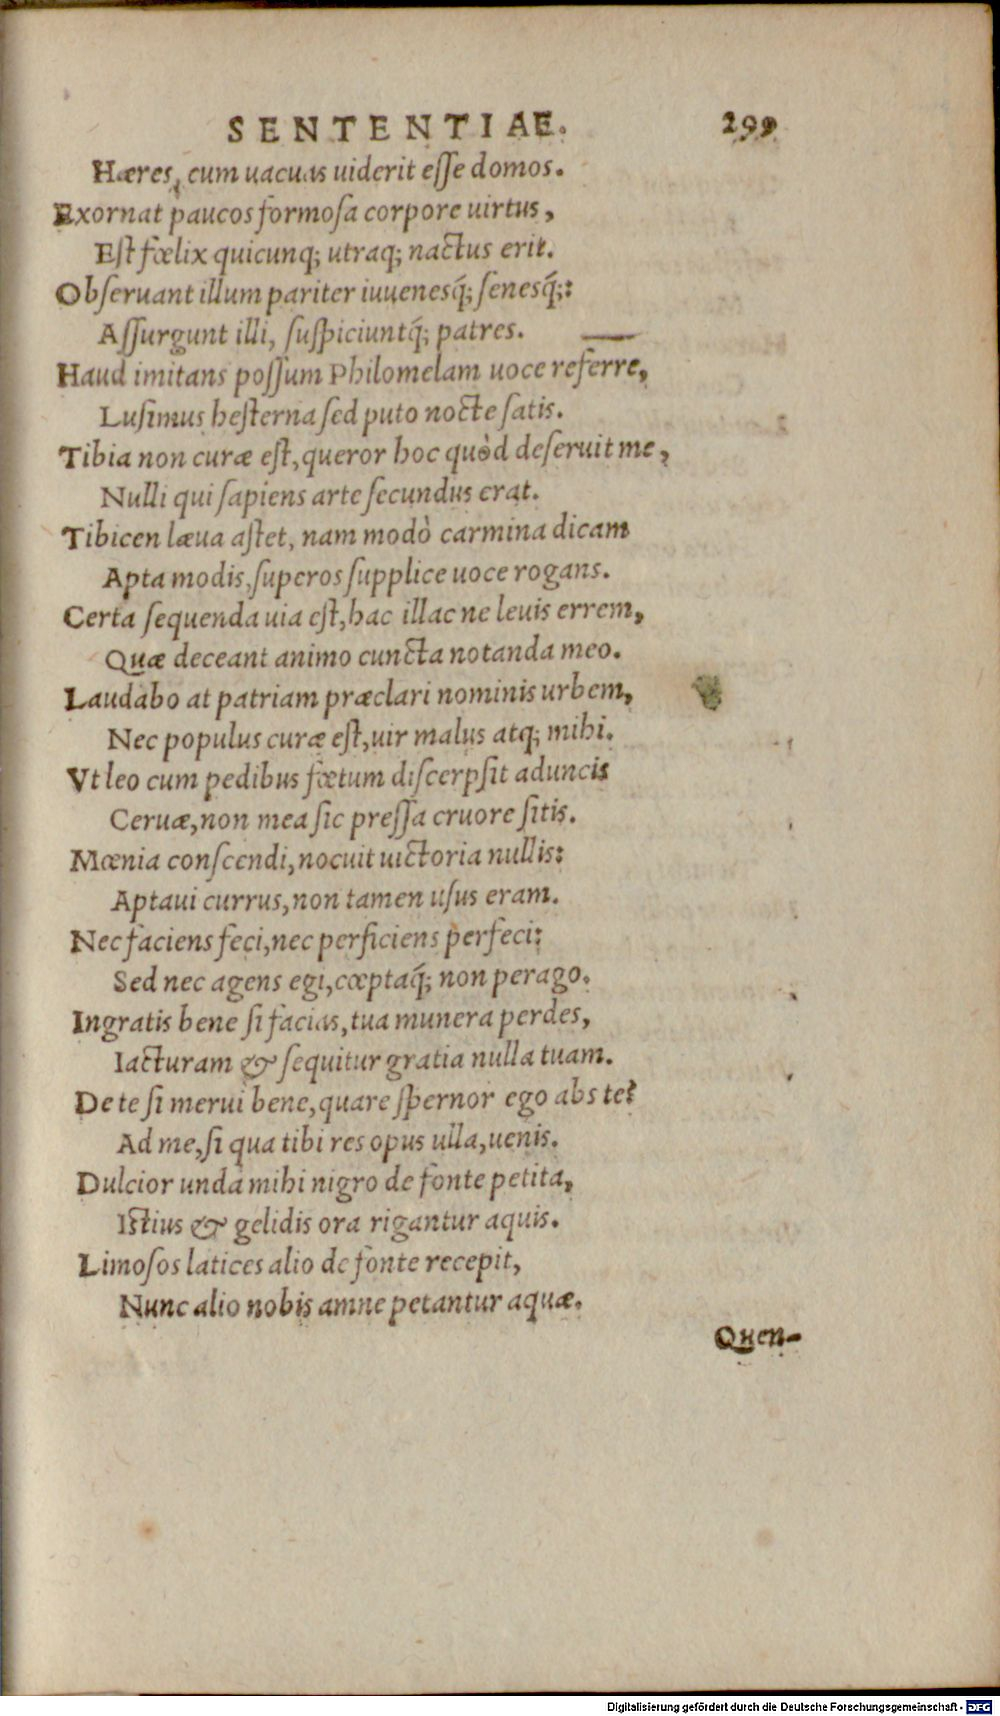 SENTENTIAE. 299
Hæres, cum uacuas uiderit esse domos.
Exornat paucos formosa corpore uirtus,
Est fœlix quicunq; utraq; nactus erit.
Obseruant illum pariter iuuenesq́; senesq́;:
Assurgunt illi, suspiciuntq́; patres.
Haud imitans possum Philomelam uoce referre,
Lusimus hesterna sed puto nocte satis.
Tibia non curæ est, queror hoc quòd deseruit me,
Nulli qui sapiens arte secundus erat.
Tibicen læua astet, nam modò carmina dicam
Apta modis, superos supplice uoce rogans.
Certa sequenda uia est, hac illac ne leuis errem,
Quæ deceant animo cuncta notanda meo.
Laudabo at patriam præclari nominis urbem,
Nec populus curæ est, uir malus atq; mihi.
Vt leo cum pedibus fœtum discerpsit aduncis
Ceruæ, non mea sic pressa cruore sitis.
Mœnia conscendi, nocuit uictoria nullis:
Aptaui currus, non tamen usus eram.
Nec faciens feci, nec perficiens perfeci:
Sed nec agens egi, cœptaq́; non perago.
Ingratis bene si facias, tua munera perdes,
Iacturam & sequitur gratia nulla tuam.
De te si merui bene, quare spernor ego abs te?
Ad me, si qua tibi res opus ulla, uenis.
Dulcior unda mihi nigro de fonte petita,
Istius & gelidis ora rigantur aquis.
Limosos latices alio de fonte recepit,
Nunc alio nobis amne petantur aquæ.
Quen-
Digitalisierung gefördert durch die Deutsche Forschungsgemeinschaft - DFG